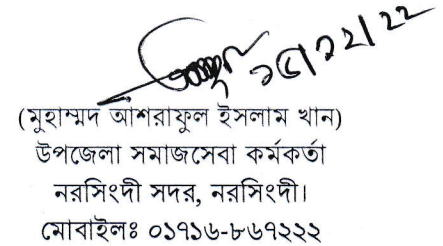 ১৫/১২/২২
(মুহাম্মদ আশরাফুল ইসলাম খান)
উপজেলা সমাজসেবা কর্মকর্তা
নরসিংদী সদর, নরসিংদী।
মোবাইলঃ ০১৭১৬-৮৬৭২২২